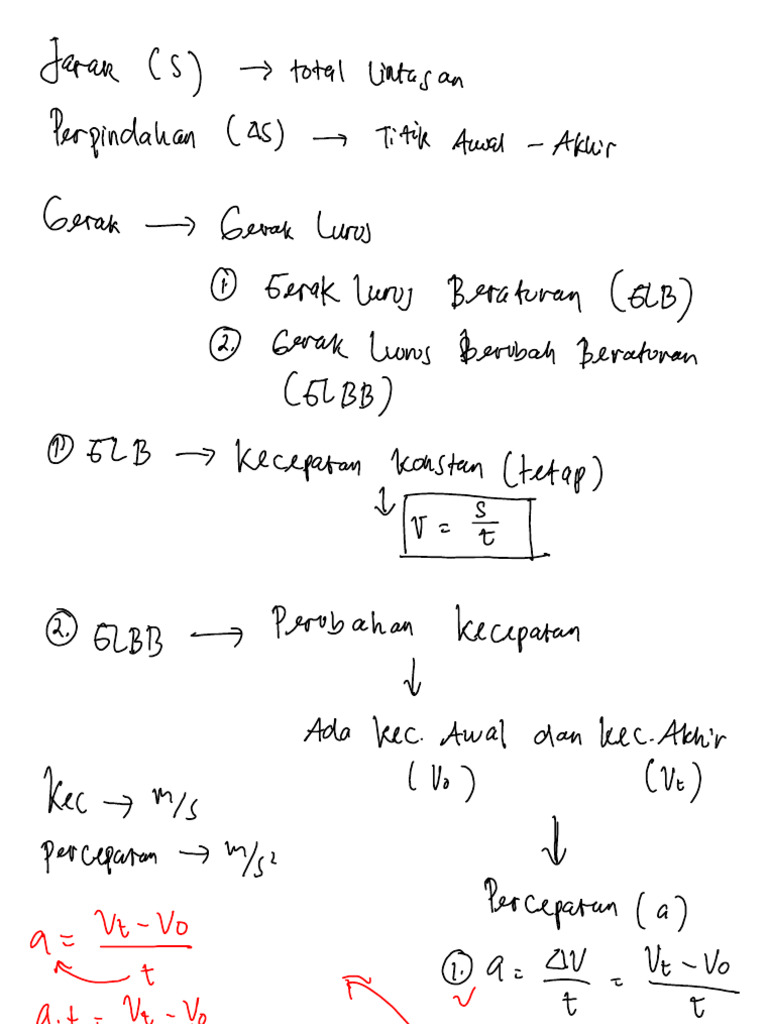 Jarak (S) → total lintasan
Perpindahan (ΔS) → Titik Awal - Akhir
Gerak → Gerak Lurus
① Gerak Lurus Beraturan (GLB)
②. Gerak Lurus Berubah Beraturan
(GLBB)
① GLB → Kecepatan konstan (tetap)
↓ V = S/t
②. GLBB → Perubahan kecepatan
↓
Ada kec. Awal dan kec. Akhir
(V₀) (Vt)
Kec → m/s
percepatan → m/s²
⇓
Percepatan (a)
①. a = ΔV/t = Vt - V₀/t
a = Vt - V₀/t
a.t = Vt - V₀